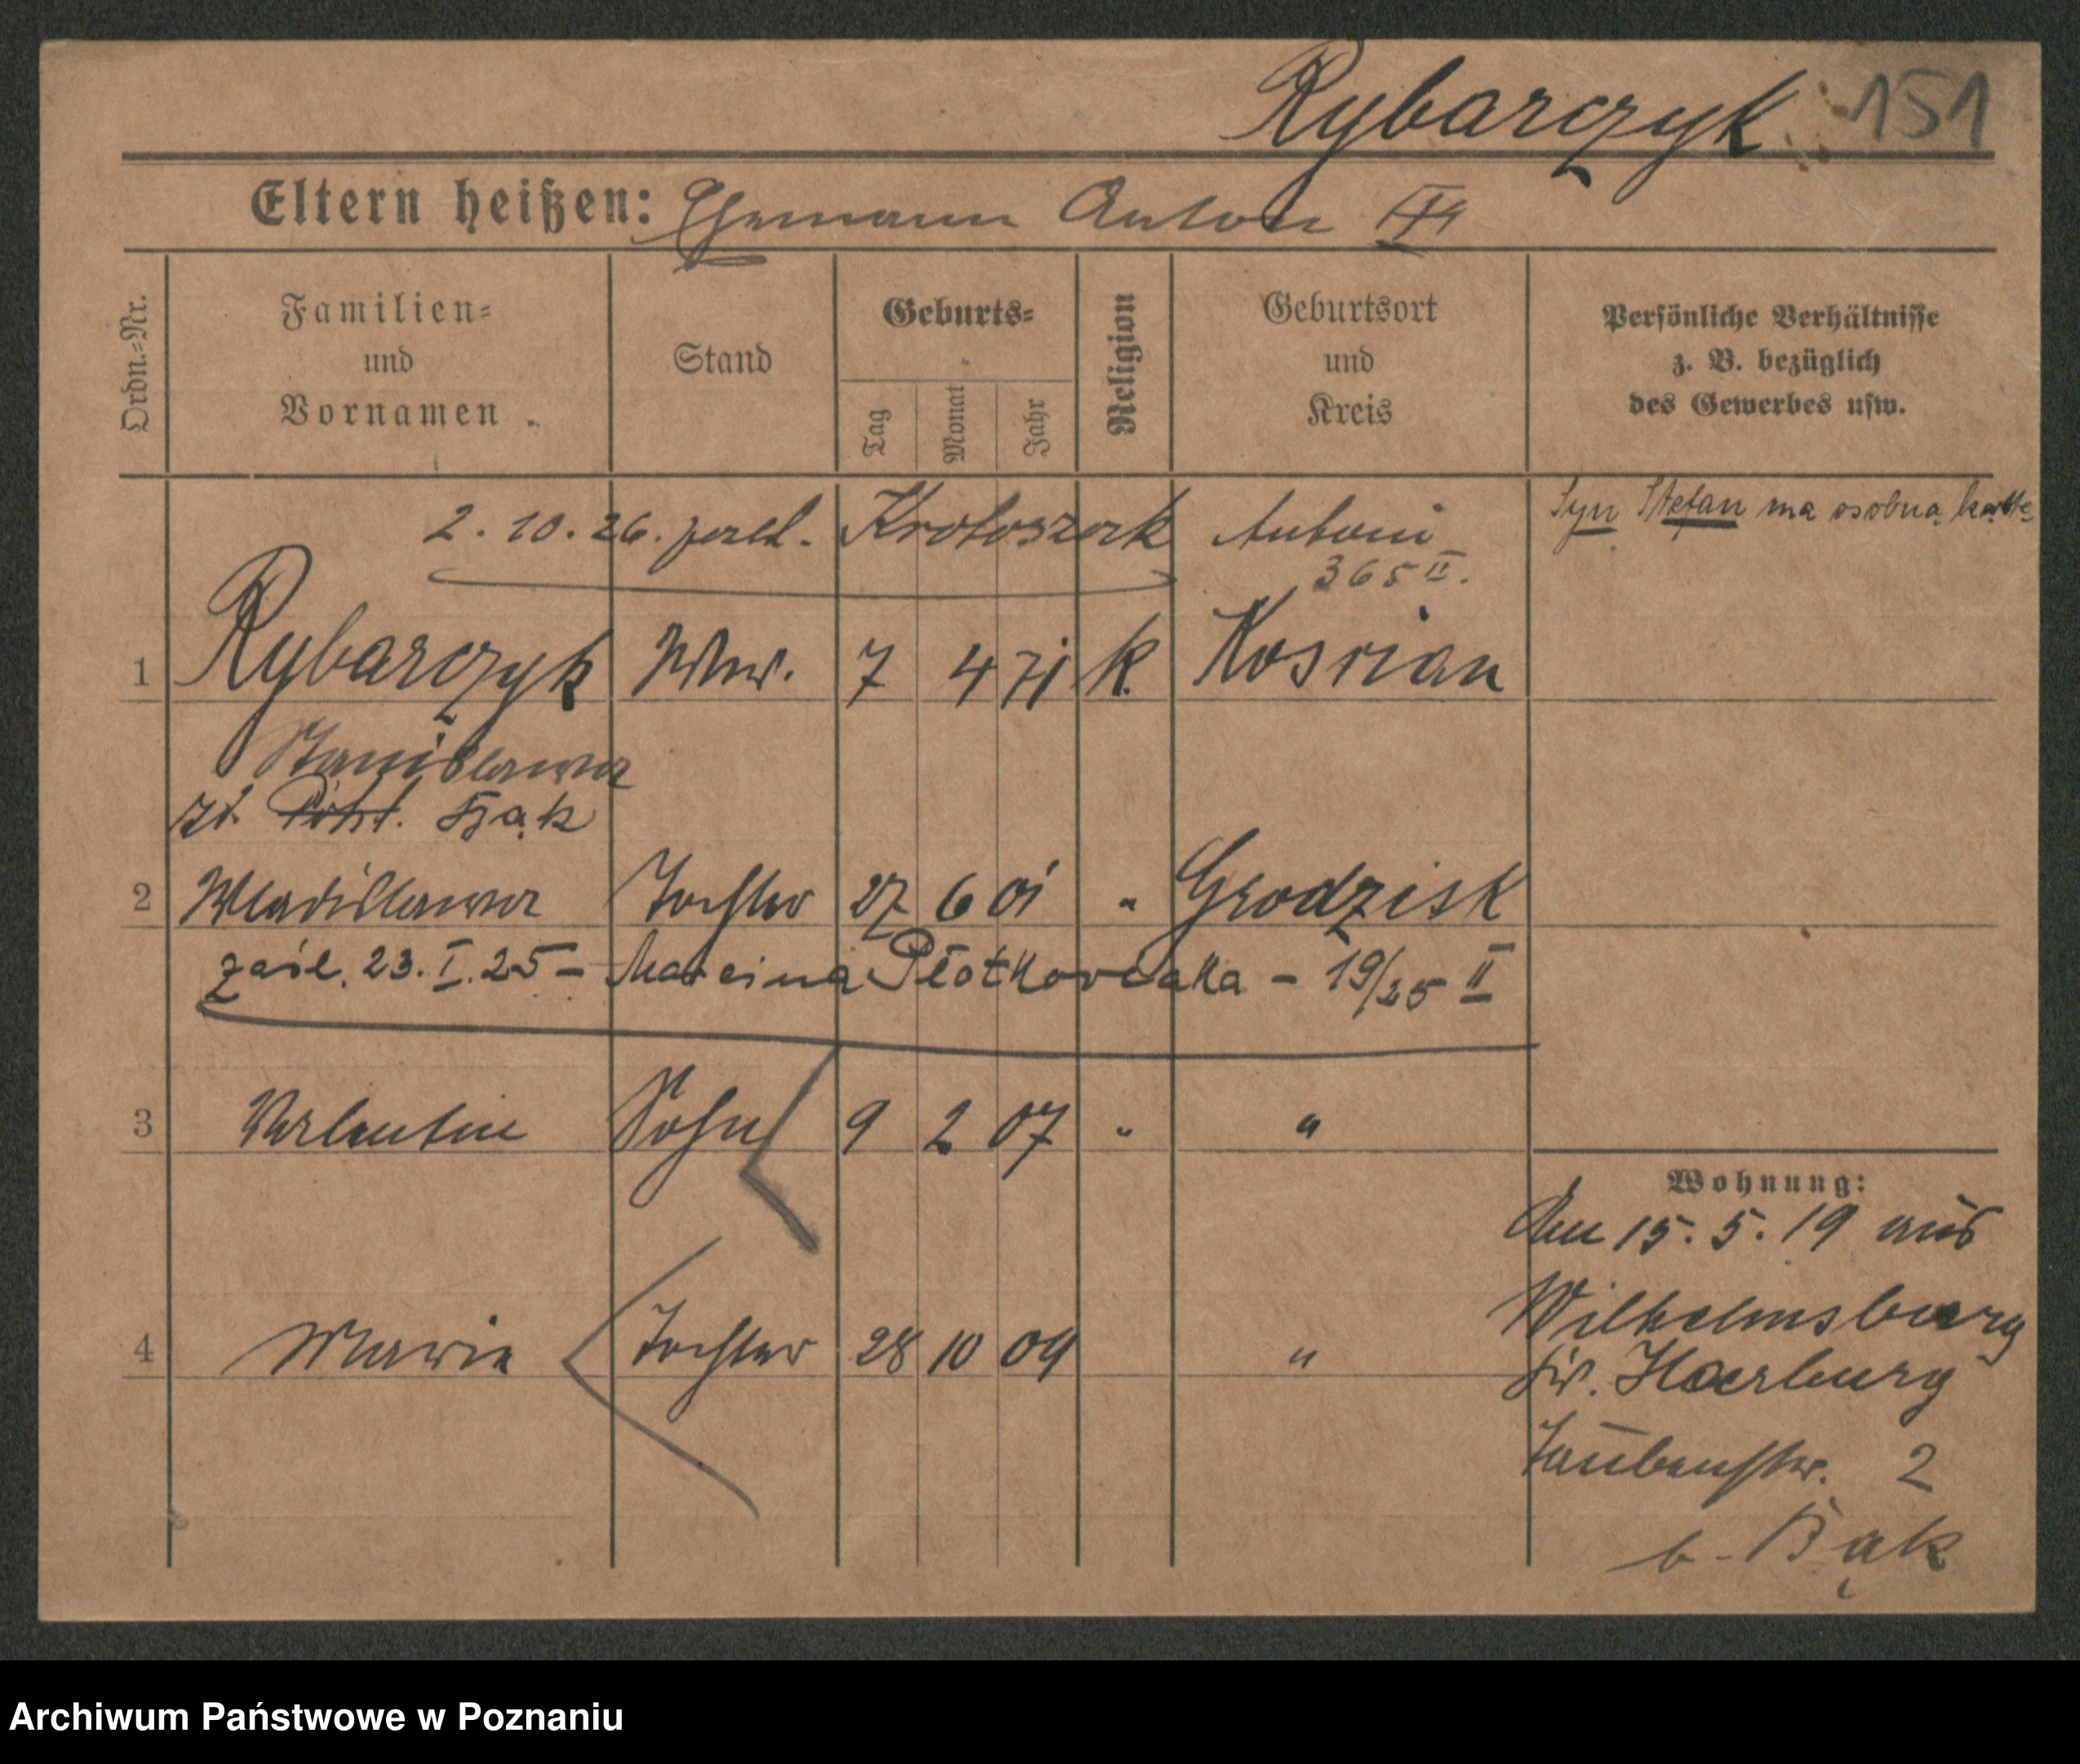 Rybarczyk 151
Eltern heißen: Ehemann Anton
Ordn.-Nr.
Familien-
und
Vornamen
Stand
Geburts-
Tag
Monat
Jahr
Religion
Geburtsort
und
Kreis
Persönliche Verhältnisse
z. B. bezüglich
des Gewerbes usw.
2. 10. 26. Krotoszak Antoni
365 II.
Syn Stefan ma osobną kartę
1 Rybarczyk Wwe. 7 4 71 k. Kosten
Stanislawa
Bąk
2 Wladislawa Tochter 27 6 01 " Grodzisk
zaśl. 23. I. 25 - Marcina Płotkowiaka - 19/25 II
3 Valentin Sohn 9 2 07 " "
Wohnung:
Den 15. 5. 19 aus
Wilhelmsburg
Kr. Harburg
4 Marie Tochter 28 10 09 "
Taubenstr. 2
b. Bąk
Archiwum Państwowe w Poznaniu